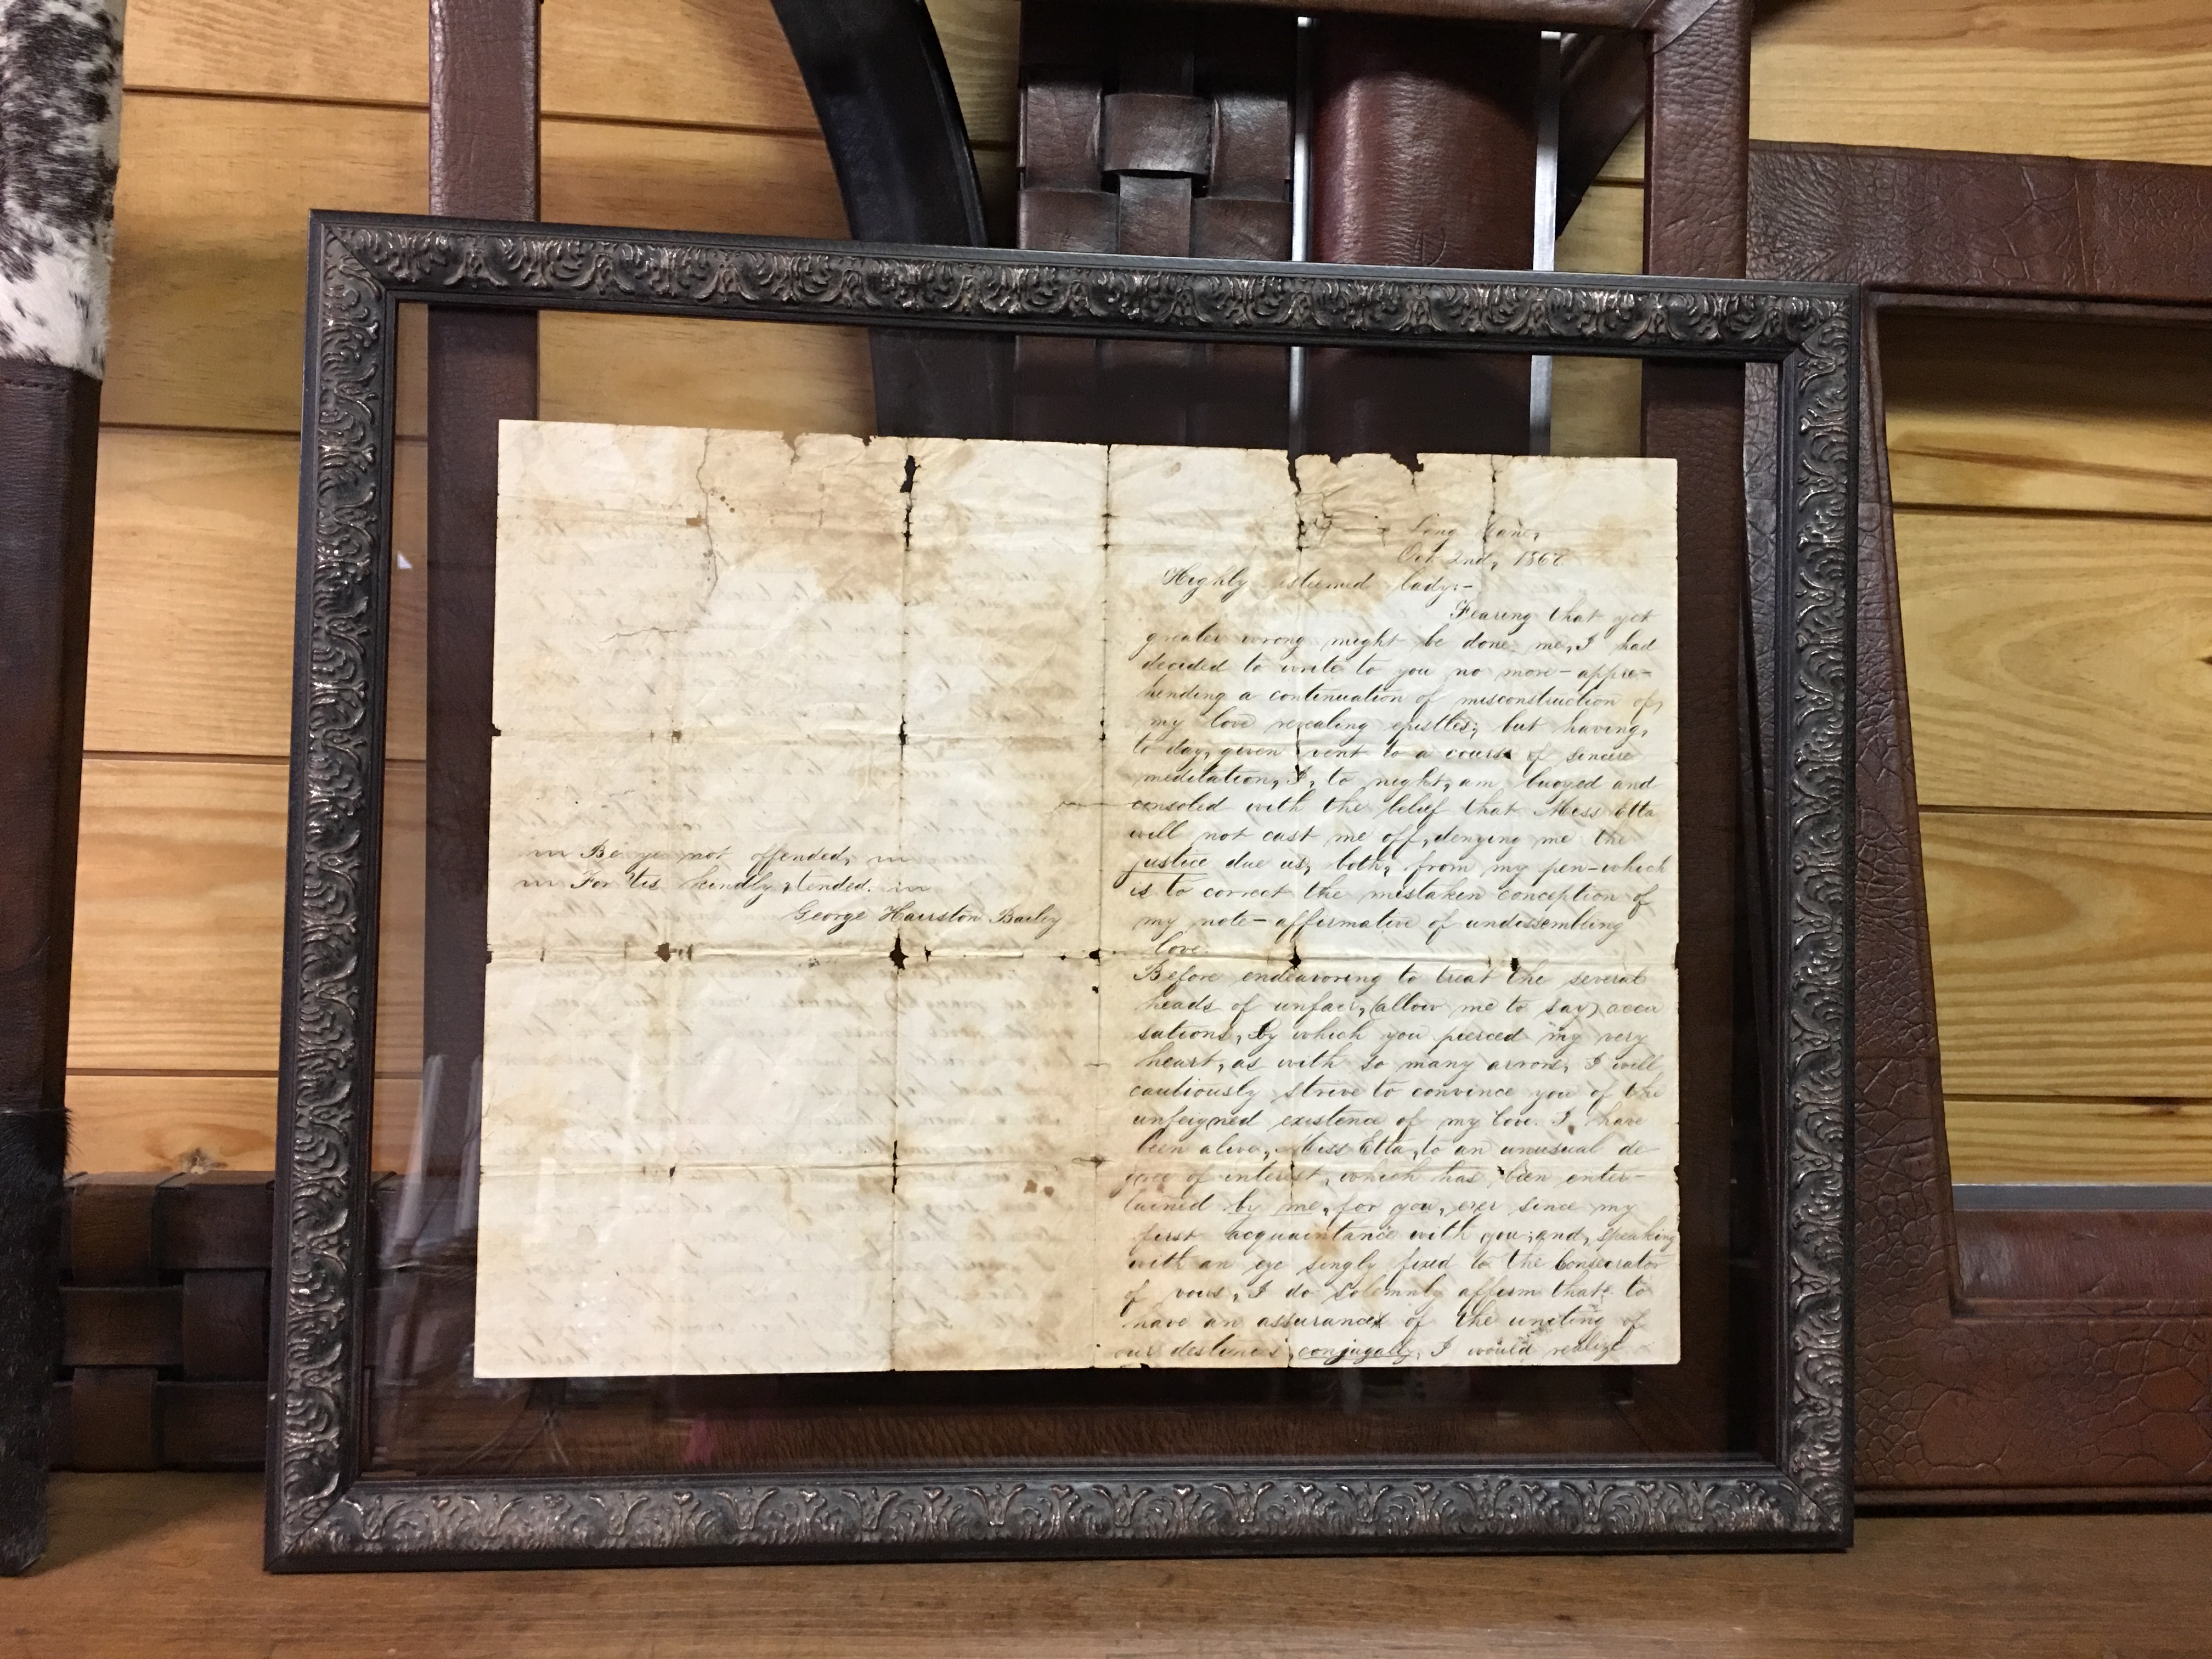 Be ye not offended,
For 'tis kindly
George Hairston Bailey
Long Cane,
Oct. 2nd, 186
Highly esteemed lady:-
Fearing that yet
greater wrong might be done me, I had
decided to write to you no more - appre-
hending a continuation of misconstruction of,
my love revealing epistles; but having,
to day, given vent to a course of sincere
meditation, I, to night, am buoyed and
consoled with the belief that Miss Etta
will not cast me off, denying me the
justice due us, both, from my pen - which
is to correct the mistaken conception of
my note - affirmative of undissembling
love.
Before endeavoring to treat the several
heads of unfair, (allow me to say) accu
sations, by which you pierced my very
heart, as with so many arrows, I will
cautiously strive to convince you of the
unfeigned existence of my love. I have
been alive, Miss Etta, to an unusual de-
gree of interest, which has been enter-
tained by me, for you, ever since my
first acquaintance with you; and, speaking
with an eye singly fixed to the Consecrator
of vows, I do solemnly affirm that to
have an assurance of the uniting of
our destinies conjugally, I would realize